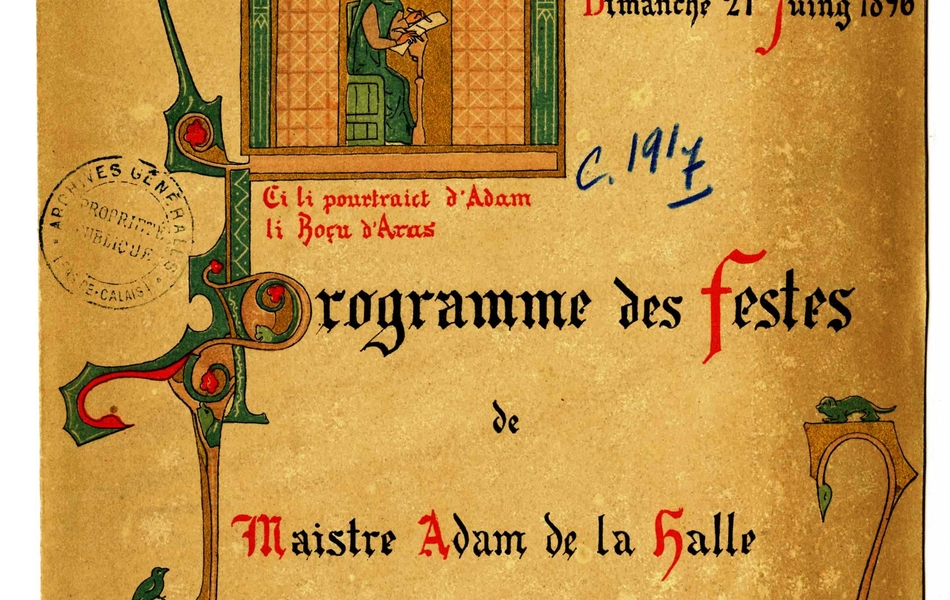 Dimanche 21 Juing 1896
C. 1917
Ci li pourtraict d'Adam
li Boçu d'Aras
ARCHIVES GÉNÉRALES
PROPRIÉTÉ
PUBLIQUE
PAS-DE-CALAIS
Programme des Festes
de
Maistre Adam de la Halle